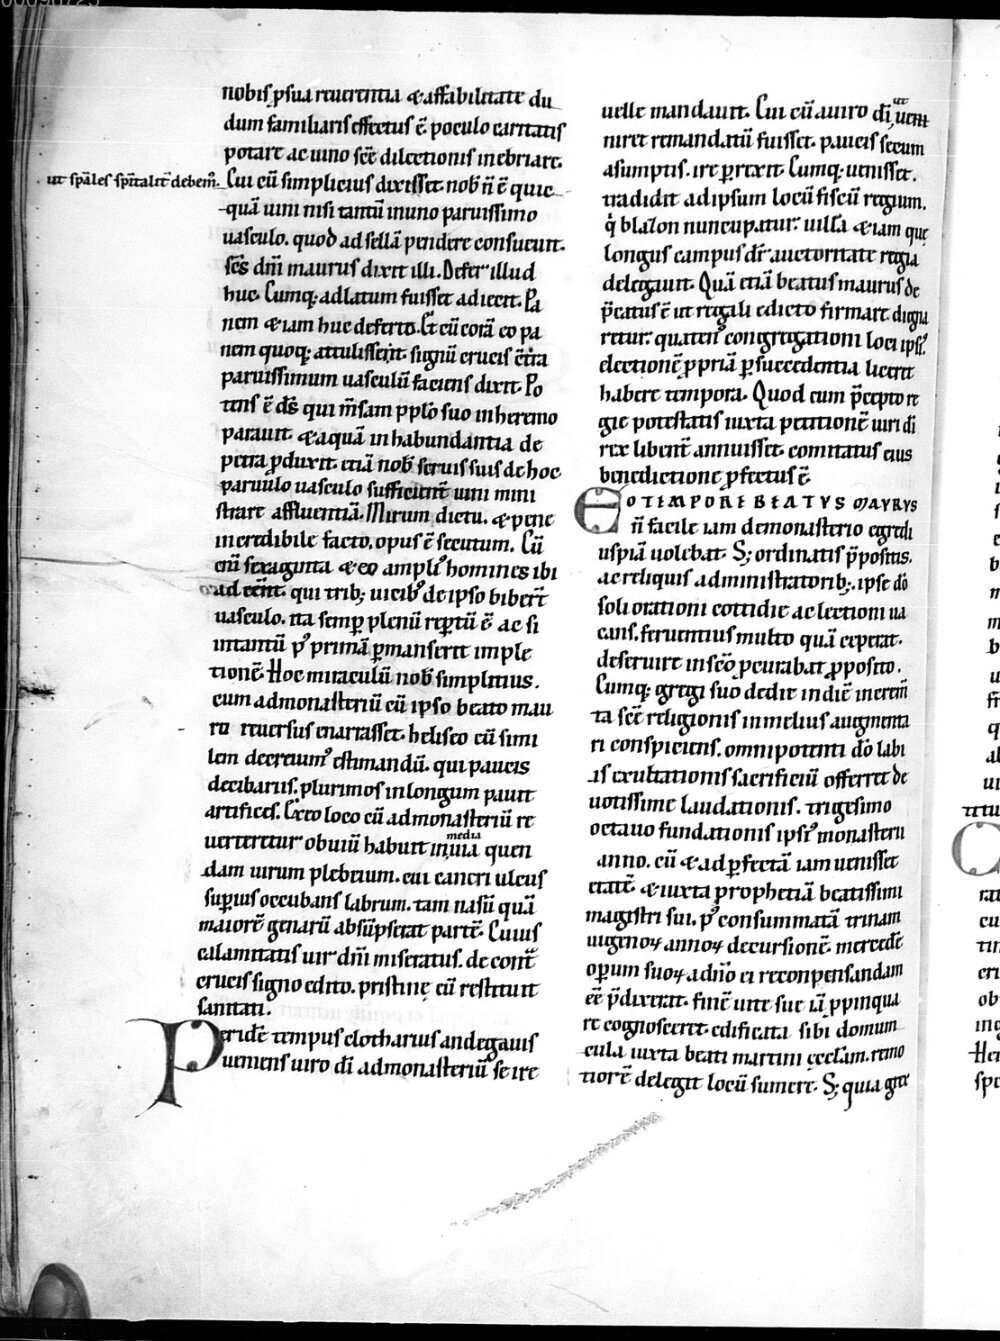 nobis ꝓ sua reuerentia & affabilitate du
dum familiaris effectus ē. poculo caritatis
potare ac uino scē dilectionis inebriare.
ut spāles spītalit̄ debem̄.
Cui cū simplicius dixisset. nob̄ n̄ ē quic
quā uini nisi tantū in uno paruissimo
uasculo. quod ad sellā pendere consueuit.
scs̄ dn̄i maurus dixit illi. Defer illud
huc. Cumq; adlatum fuisset adiecit. Pa
nem &iam huc deferto. Et cū corā eo pa
nem quoq; attulissent. signū crucis c̄tra
paruissimum uasculū faciens dixit. Po
tens ē ds̄ qui m̄sam pplo suo in heremo
parauit. & aquā in habundantia de
petra ꝓduxit. etiā nob̄ seruis suis de hoc
paruulo uasculo sufficient̄ uini mini
strare affluentiā. Mirum dictu. & pene
incredibile facto. opus ē secutum. Cū
eni sexaginta & eo ampli' homines ibi
adeēnt. qui trib; uicib' de ipso biber̄t
uasculo. ita semp plenū reptū ē ac si
intantū p' primā pmanserit imple
tionē. Hoc miraculū nob̄ simplitius.
cum ad monasteriū cū ipso beato mau
ro reuersus enarrasset. heliseo cū simi
lem decreuim' estimandū. qui paucis
decibariis. plurimos in longum pauit
artifices. Exto loco cū ad monasteriū re
uerteretur obuiū habuit in media uia quen
dam uirum plebeium. cui cancri ulcus
supius occubans labrum. tam nasū quā
maiorē genarū absūpserat partē. Cuius
calamitatis uir dn̄i miseratus. de cont̄
crucis signo edito. pristinę eū restituit
sanitati.
Per idē tempus clotharius andegauis
ueniens uiro dī ad monasteriū se ire
uelle mandauit. Cui cū a uiro dī. ut ueni
niret remandatū fuisset. paucis secum
asumptis. ire prexit. Cumq; uenisset.
tradidit ad ipsum locū fiscū regium.
q̇ blason nuncupatur. uilla &iam que
longus campus dr̄ auctoritate regia
delegauit. Quā etiā beatus maurus de
p̄catus ē ut regali edicto firmare digna
retur. quaten' congregationi loci ipsi'
electionē ꝓpriā p succedentia liceret
habere tempora. Quod cum p̄cepto re
gie potestatis iuxta petitionē uiri dī
rex libent̄ annuisset. comitatus eius
benedictione ꝓfectus ē.
EO TEMPORE BEATVS MAVRVS
n̄ facile iam de monasterio egredi
uspiā uolebat. S; ordinatis p̄positis.
ac reliquis administratorib;. ipse dō
soli orationi cottidie ac lectioni ua
cans. feruentius multo quā ceperat.
deseruire in scō pcurabat ꝓposito.
Cumq; gregi suo de die in diē increm̄
ta scē religionis in melius augmenta
ri conspiciens. omnipotenti dō labi
is exultationis sacrificiū offerret de
uotissime laudationis. trigesimo
octauo fundationis ipsi' monasterii
anno. cū & ad pfectā iam uenisset
etatē & iuxta prophetiā beatissimi
magistri sui. p' consummatā trinam
uigenoꝝ annoꝝ decursionē. mercedē
opum suoꝝ a dn̄o ei reconpensandam
eē p̄dixerat. finē uite sue iā ppinqua
re cognosceret. edificata sibi domum
cula iuxta beati martini ęcclam. remo
tiorē delegit locū sumere. S; quia gre